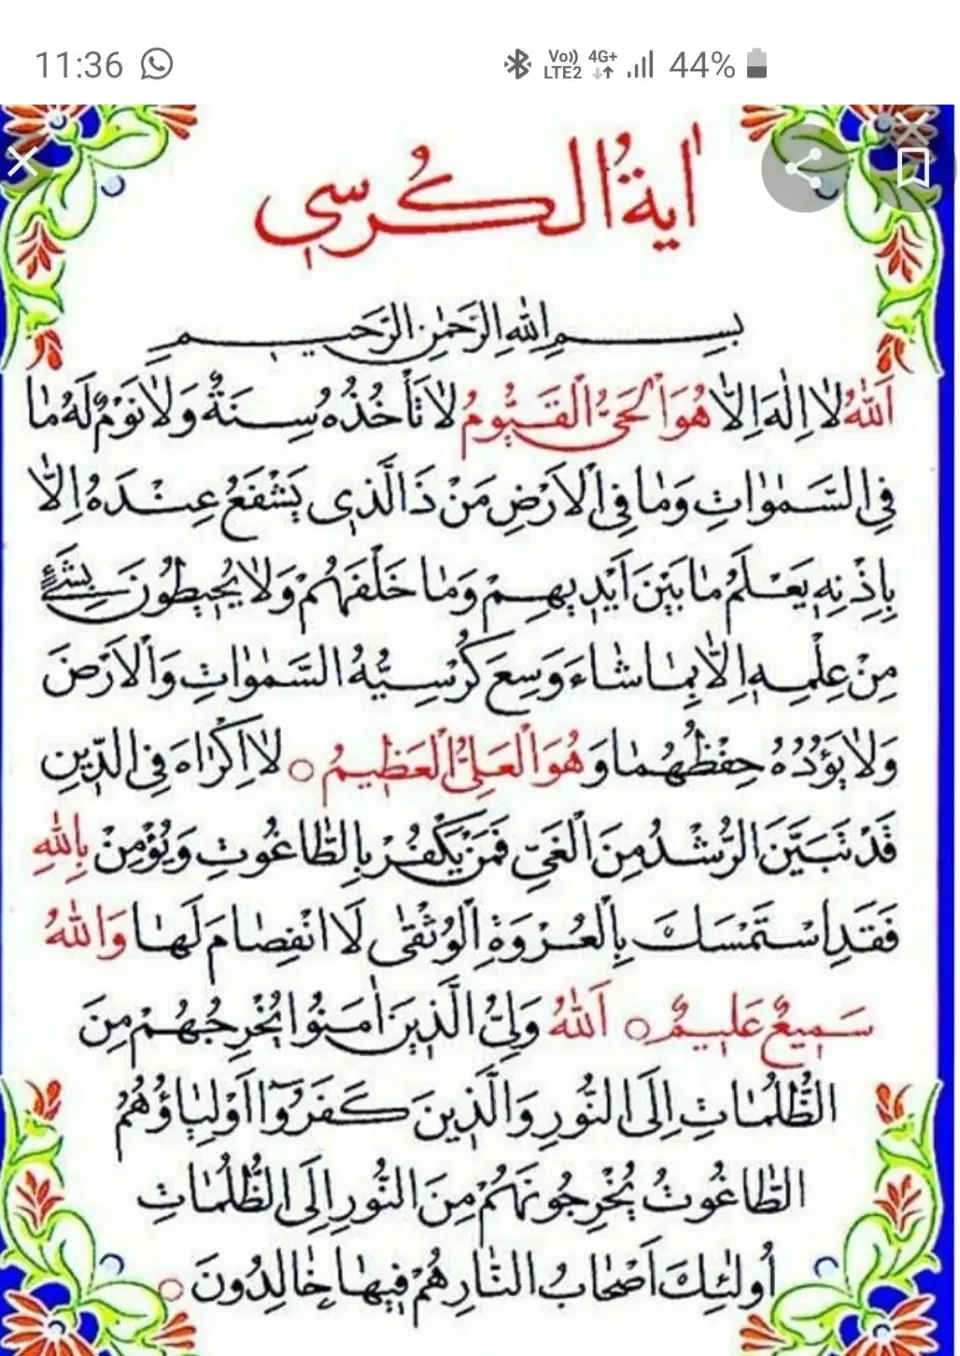 11:36
Vo)) LTE2 4G+ 44%
اٰيةُ الكُرسي
بِسْمِ اللهِ الرَّحْمٰنِ الرَّحيمِ
اَللهُ لاٰ اِلٰهَ اِلاّٰ هُوَ الْحَيُّ الْقَيُّومُ لاٰ تَأْخُذُهُ سِنَةٌ وَلاٰ نَوْمٌ لَهُ مٰا
فِي السَّمٰوٰاتِ وَمٰا فِي الْاَرْضِ مَنْ ذَا الَّذي يَشْفَعُ عِنْدَهُ اِلاّٰ
بِاِذْنِهِ يَعْلَمُ مٰا بَيْنَ اَيْديهِمْ وَمٰا خَلْفَهُمْ وَلاٰ يُحيطُونَ بِشَيْءٍ
مِنْ عِلْمِهِ اِلاّٰ بِمٰا شٰاءَ وَسِعَ كُرْسِيُّهُ السَّمٰوٰاتِ وَالْاَرْضَ
وَلاٰ يَؤُدُهُ حِفْظُهُمٰا وَ هُوَ الْعَلِيُّ الْعَظيمُ ○ لاٰ اِكْرٰاهَ فِي الدّينِ
قَدْ تَبَيَّنَ الرُّشْدُ مِنَ الْغَيِّ فَمَنْ يَكْفُرْ بِالطّٰاغُوتِ وَيُؤْمِنْ بِاللهِ
فَقَدِ اسْتَمْسَكَ بِالْعُرْوَةِ الْوُثْقىٰ لَا انْفِصٰامَ لَهٰا وَاللهُ
سَميعٌ عَليمٌ ○ اَللهُ وَلِيُّ الَّذينَ اٰمَنُوا يُخْرِجُهُمْ مِنَ
الظُّلُمٰاتِ اِلَى النُّورِ وَالَّذينَ كَفَرُوٓا اَوْلِيٰاؤُهُمُ
الطّٰاغُوتُ يُخْرِجُونَهُمْ مِنَ النُّورِ اِلَى الظُّلُمٰاتِ
اُولٰئِكَ اَصْحٰابُ النّٰارِ هُمْ فيهٰا خٰالِدُونَ ○